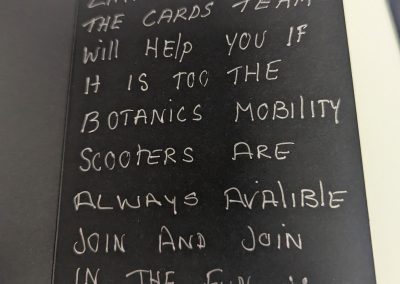 THE CARDS TEAM
Will HElp YOU IF
IT IS TOO THE
BOTANICS MOBILITY
SCOOTERS ARE
ALWAYS AVAlIBlE
JOIN AND JOIN
IN THE FUN